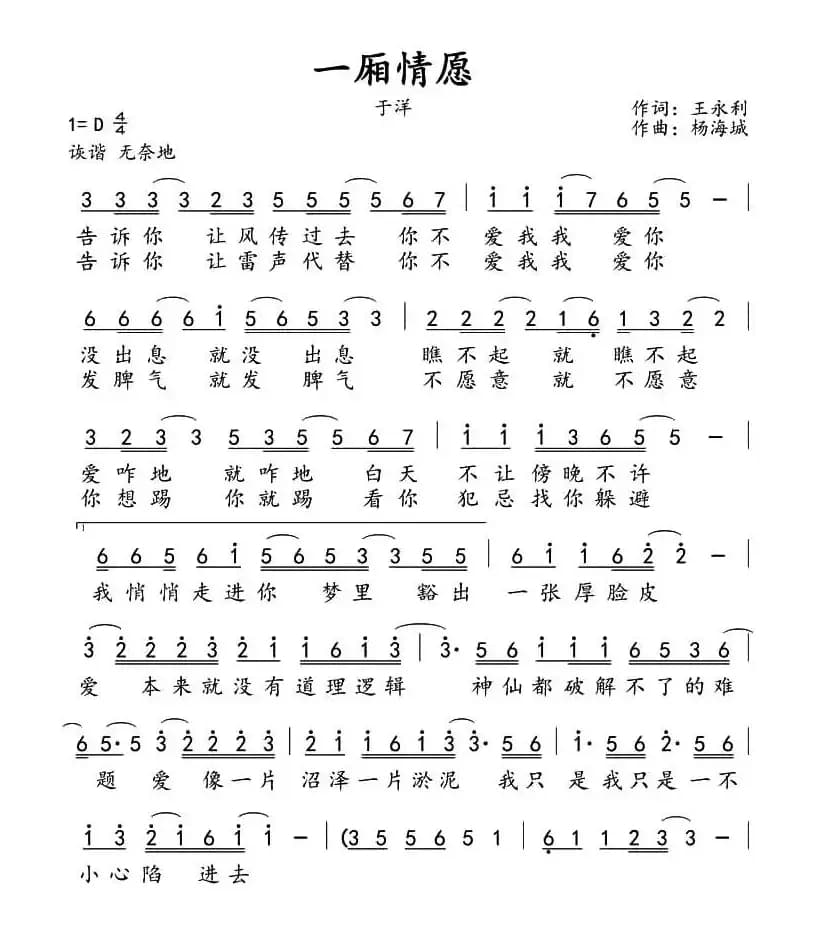 一厢情愿
于洋
1= D 4/4
作词：王永利
作曲：杨海城
诙谐 无奈地
3 3 3 3 2 3 5 5 5 5 6 7 | i i i 7 6 5 5 － |
告诉你 让风传过去 你不 爱我我 爱你
告诉你 让雷声代替 你不 爱我我 爱你
6 6 6 6 i 5 6 5 3 3 | 2 2 2 2 1 6 1 3 2 2 |
没出息 就没 出息 瞧不起 就 瞧不起
发脾气 就发 脾气 不愿意 就 不愿意
3 2 3 3 5 3 5 5 6 7 | i i i 3 6 5 5 － |
爱咋地 就咋地 白天 不让傍晚不许
你想踢 你就踢 看你 犯忌找你躲避
1.
6 6 5 6 i 5 6 5 3 3 3 5 5 | 6 i i 6 2 2 － |
我悄悄走进你 梦里 豁出 一张厚脸皮
3 2 2 2 3 2 i i 6 i 3 | 3· 5 6 i i i 6 5 3 6 |
爱 本来就没有道理逻辑 神仙都破解不了的难
6 5· 5 3 2 2 2 3 | 2 i i 6 i 3 3· 5 6 | i· 5 6 2· 5 6 |
题 爱 像一片 沼泽一片淤泥 我只 是我只是一不
i 3 2 i 6 i i － | (3 5 5 6 5 1 | 6 1 1 2 3 3 － |
小心陷 进去